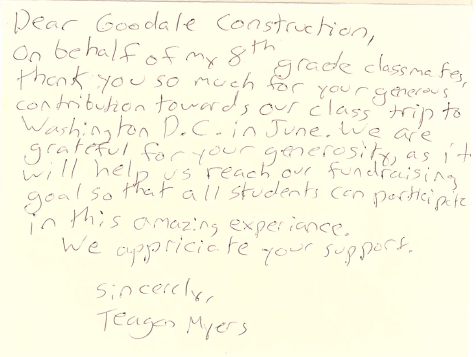 Dear Goodale Construction,
On behalf of my 8th grade classmates,
thank you so much for your generous
contribution towards our class trip to
Washington D.C. in June. We are
grateful for your generosity, as it
will help us reach our fundraising
goal so that all students can participate
in this amazing experiance.
We appriciate your support.
Sincerely,
Teagan Myers